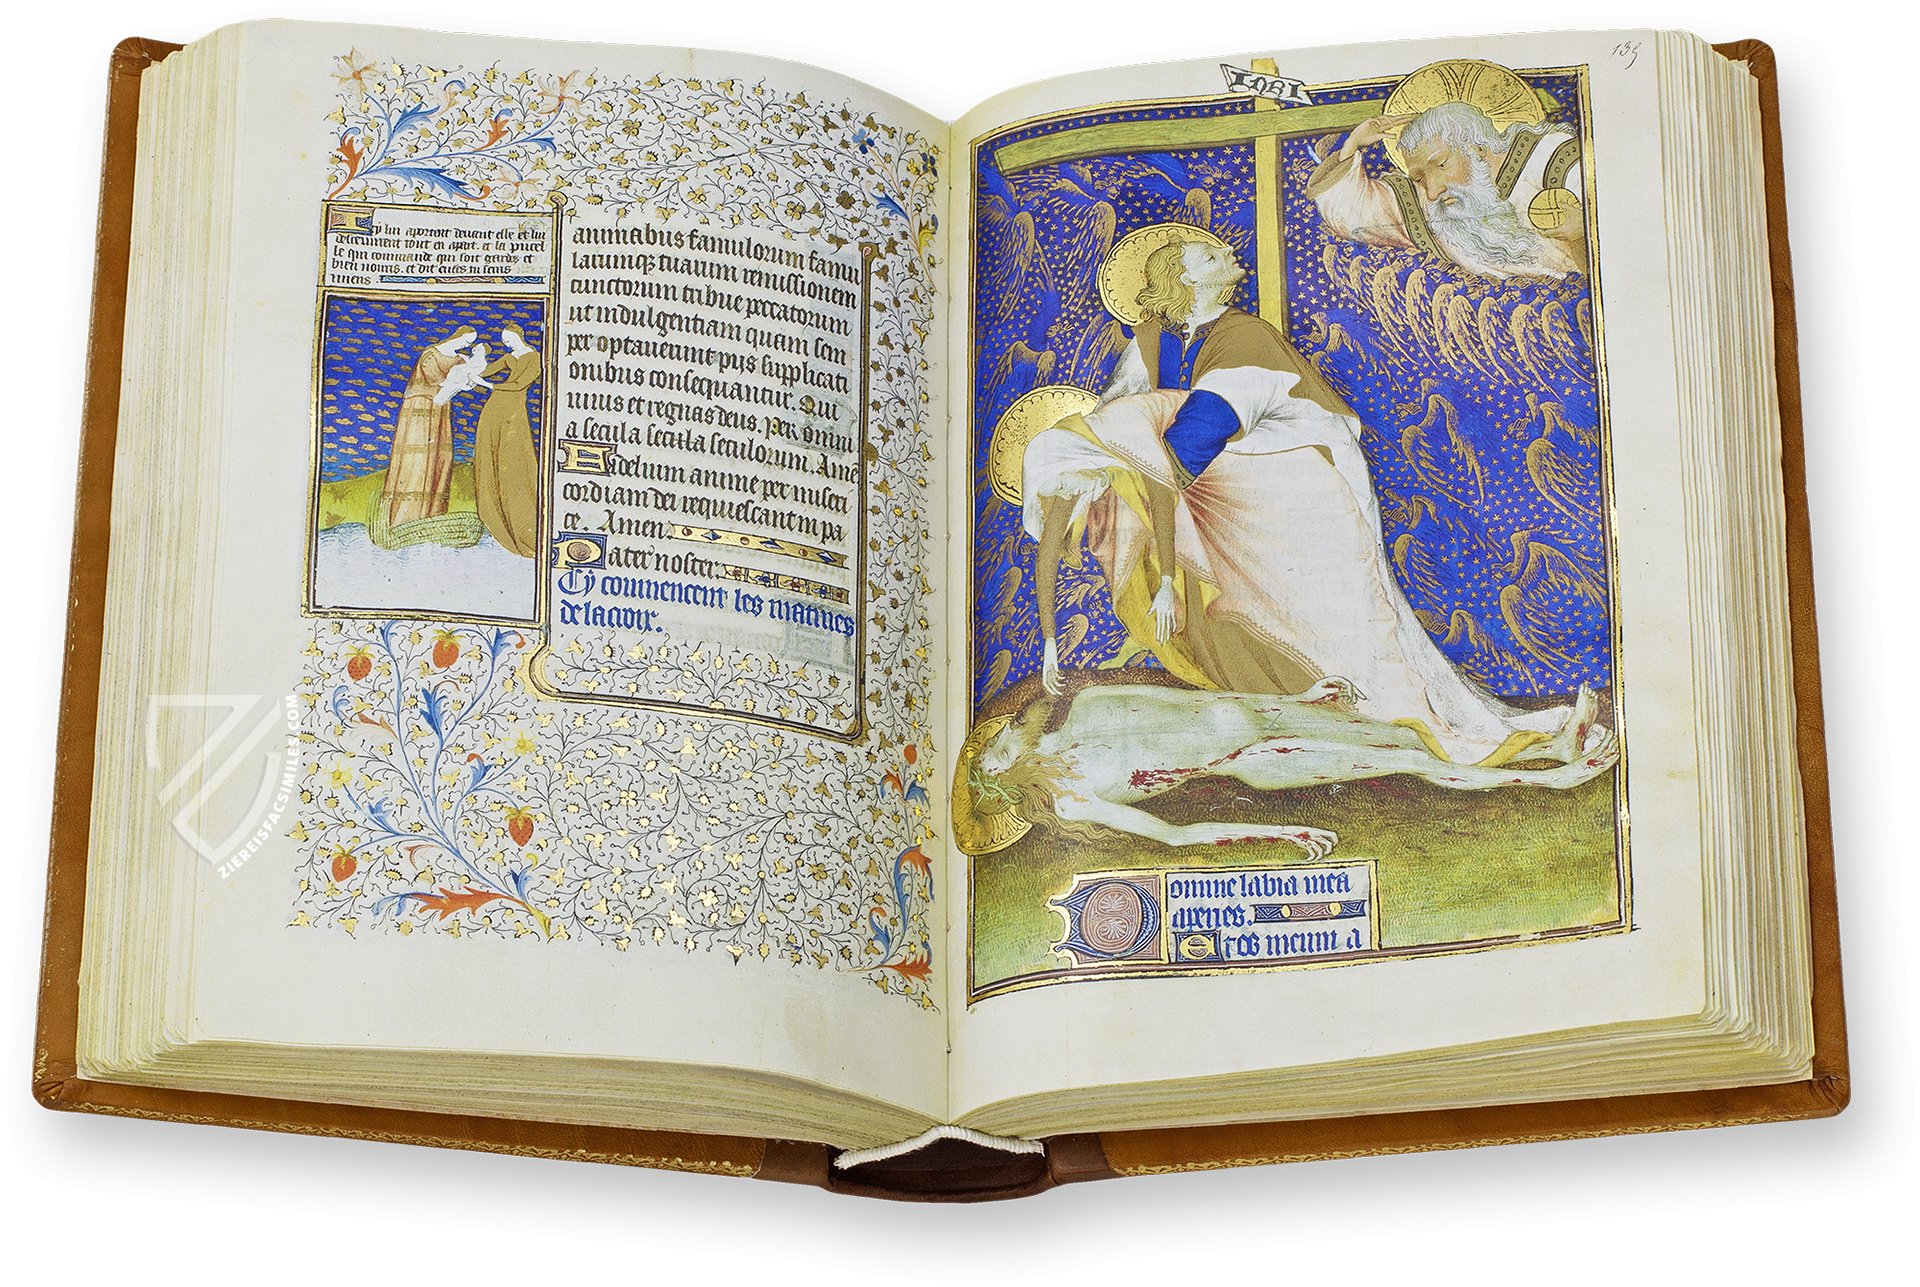 Cy lui aportent devant elle et lui
descenvirent tout en apert. et la pucel
le qui commande qui soit gardes et
bien nouris. et dit cuses tu seris
animabus famulorum famu
larumq; tuarum remissionem
cunctorum tribue peccatorum
ut indulgentiam quam sem
per optaverunt pijs supplicati
onibus consequantur. Qui
vivis et regnas deus. Per omni
a secula secula seculorum. Amē
Fidelium anime per miseri
cordiam dei requiescant in pa
ce. Amen.
Pater noster.
Cy commencent les matines
de la croix.
135
INRI
Domine labia mea
aperies.
Et os meum a
ZIEREISFACSIMILES.COM